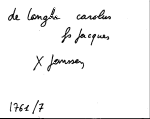 de Langhe carolus
fs Jacques
X Janssens
1761/7